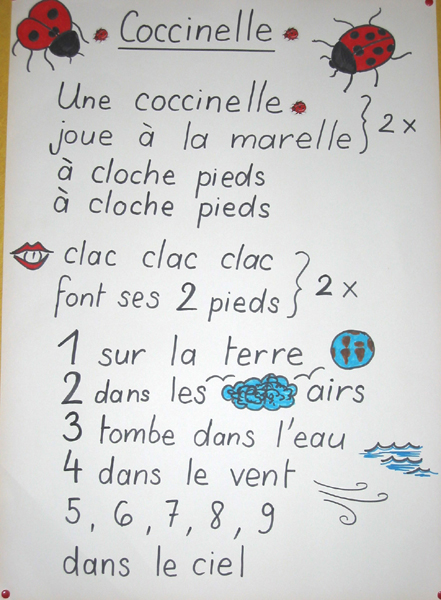 Coccinelle
Une coccinelle
joue à la marelle } 2 x
à cloche pieds
à cloche pieds
clac clac clac
font ses 2 pieds } 2 x
1 sur la terre
2 dans les airs
3 tombe dans l'eau
4 dans le vent
5, 6, 7, 8, 9
dans le ciel